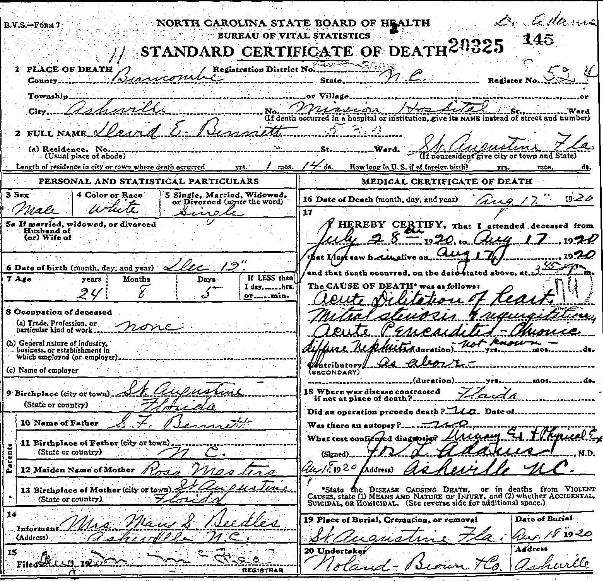 B.V.S.—Form 7
NORTH CAROLINA STATE BOARD OF HEALTH
BUREAU OF VITAL STATISTICS
STANDARD CERTIFICATE OF DEATH 20325 145
Dr. Adams
11
1 PLACE OF DEATH Registration District No.
County Buncombe State, N.C. Register No. 524
Township or Village or
City, Asheville No. Mission Hospital St. Ward
(If death occurred in a hospital or institution, give its NAME instead of street and number)
2 FULL NAME E. Bennett
(a) Residence. No. St. Ward. St Augustine Fla
(Usual place of abode) (If nonresident give city or town and State)
Length of residence in city or town where death occurred yrs. 1 mos. 14 ds. How long in U. S. if of foreign birth? yrs. mos. ds.
PERSONAL AND STATISTICAL PARTICULARS
3 Sex 4 Color or Race 5 Single, Married, Widowed, or Divorced (write the word)
Male White Single
5a If married, widowed, or divorced
Husband of
(or) Wife of
6 Date of birth (month, day, and year) Dec 12"
7 Age years Months Days If LESS than
1 day, hrs.
or min.
24 8 5
8 Occupation of deceased
(a) Trade, Profession, or
particular kind of work none
(b) General nature of industry,
business, or establishment in
which employed (or employer)
(c) Name of employer
9 Birthplace (city or town) St Augustine
(State or country) Florida
Parents
10 Name of Father S. F. Bennett
11 Birthplace of Father (city or town)
(State or country) N.C.
12 Maiden Name of Mother Rosa Masters
13 Birthplace of Mother (city or town) St Augustine
(State or country) Florida
14
Informant Mrs. Mary S. Beedles
(Address) Asheville N.C.
15
Filed 192
REGISTRAR
MEDICAL CERTIFICATE OF DEATH
16 Date of Death (month, day, and year) Aug 17" 1920
17
I HEREBY CERTIFY, That I attended deceased from
July 28th 1920 to Aug 17 1920
that I last saw h alive on Aug 17 1920
and that death occurred, on the date stated above, at 3 m.
The CAUSE OF DEATH* was as follows:
Acute Dilitation of heart
Mitral stenosis & regurgitation,
Acute Pericarditis - Chronic
diffuse Nephritis (duration) not known yrs. mos. ds.
Contributory as above
(SECONDARY)
(duration) yrs. mos. ds.
18 Where was disease contracted
if not at place of death? Florida
Did an operation precede death? no Date of
Was there an autopsy? no
What test confirmed diagnosis? Urinary Ex & Physical Ex
(Signed) L Adams M.D.
Aug 18 1920 (Address) Asheville N.C.
*State the DISEASE CAUSING DEATH, or in deaths from VIOLENT
CAUSES, state (1) MEANS AND NATURE OF INJURY, and (2) whether ACCIDENTAL,
SUICIDAL, OR HOMICIDAL. (See reverse side for additional space.)
19 Place of Burial, Cremation, or removal Date of Burial
St Augustine Fla. Aug. 18 1920
20 Undertaker Address
Noland-Brown & Co. Asheville